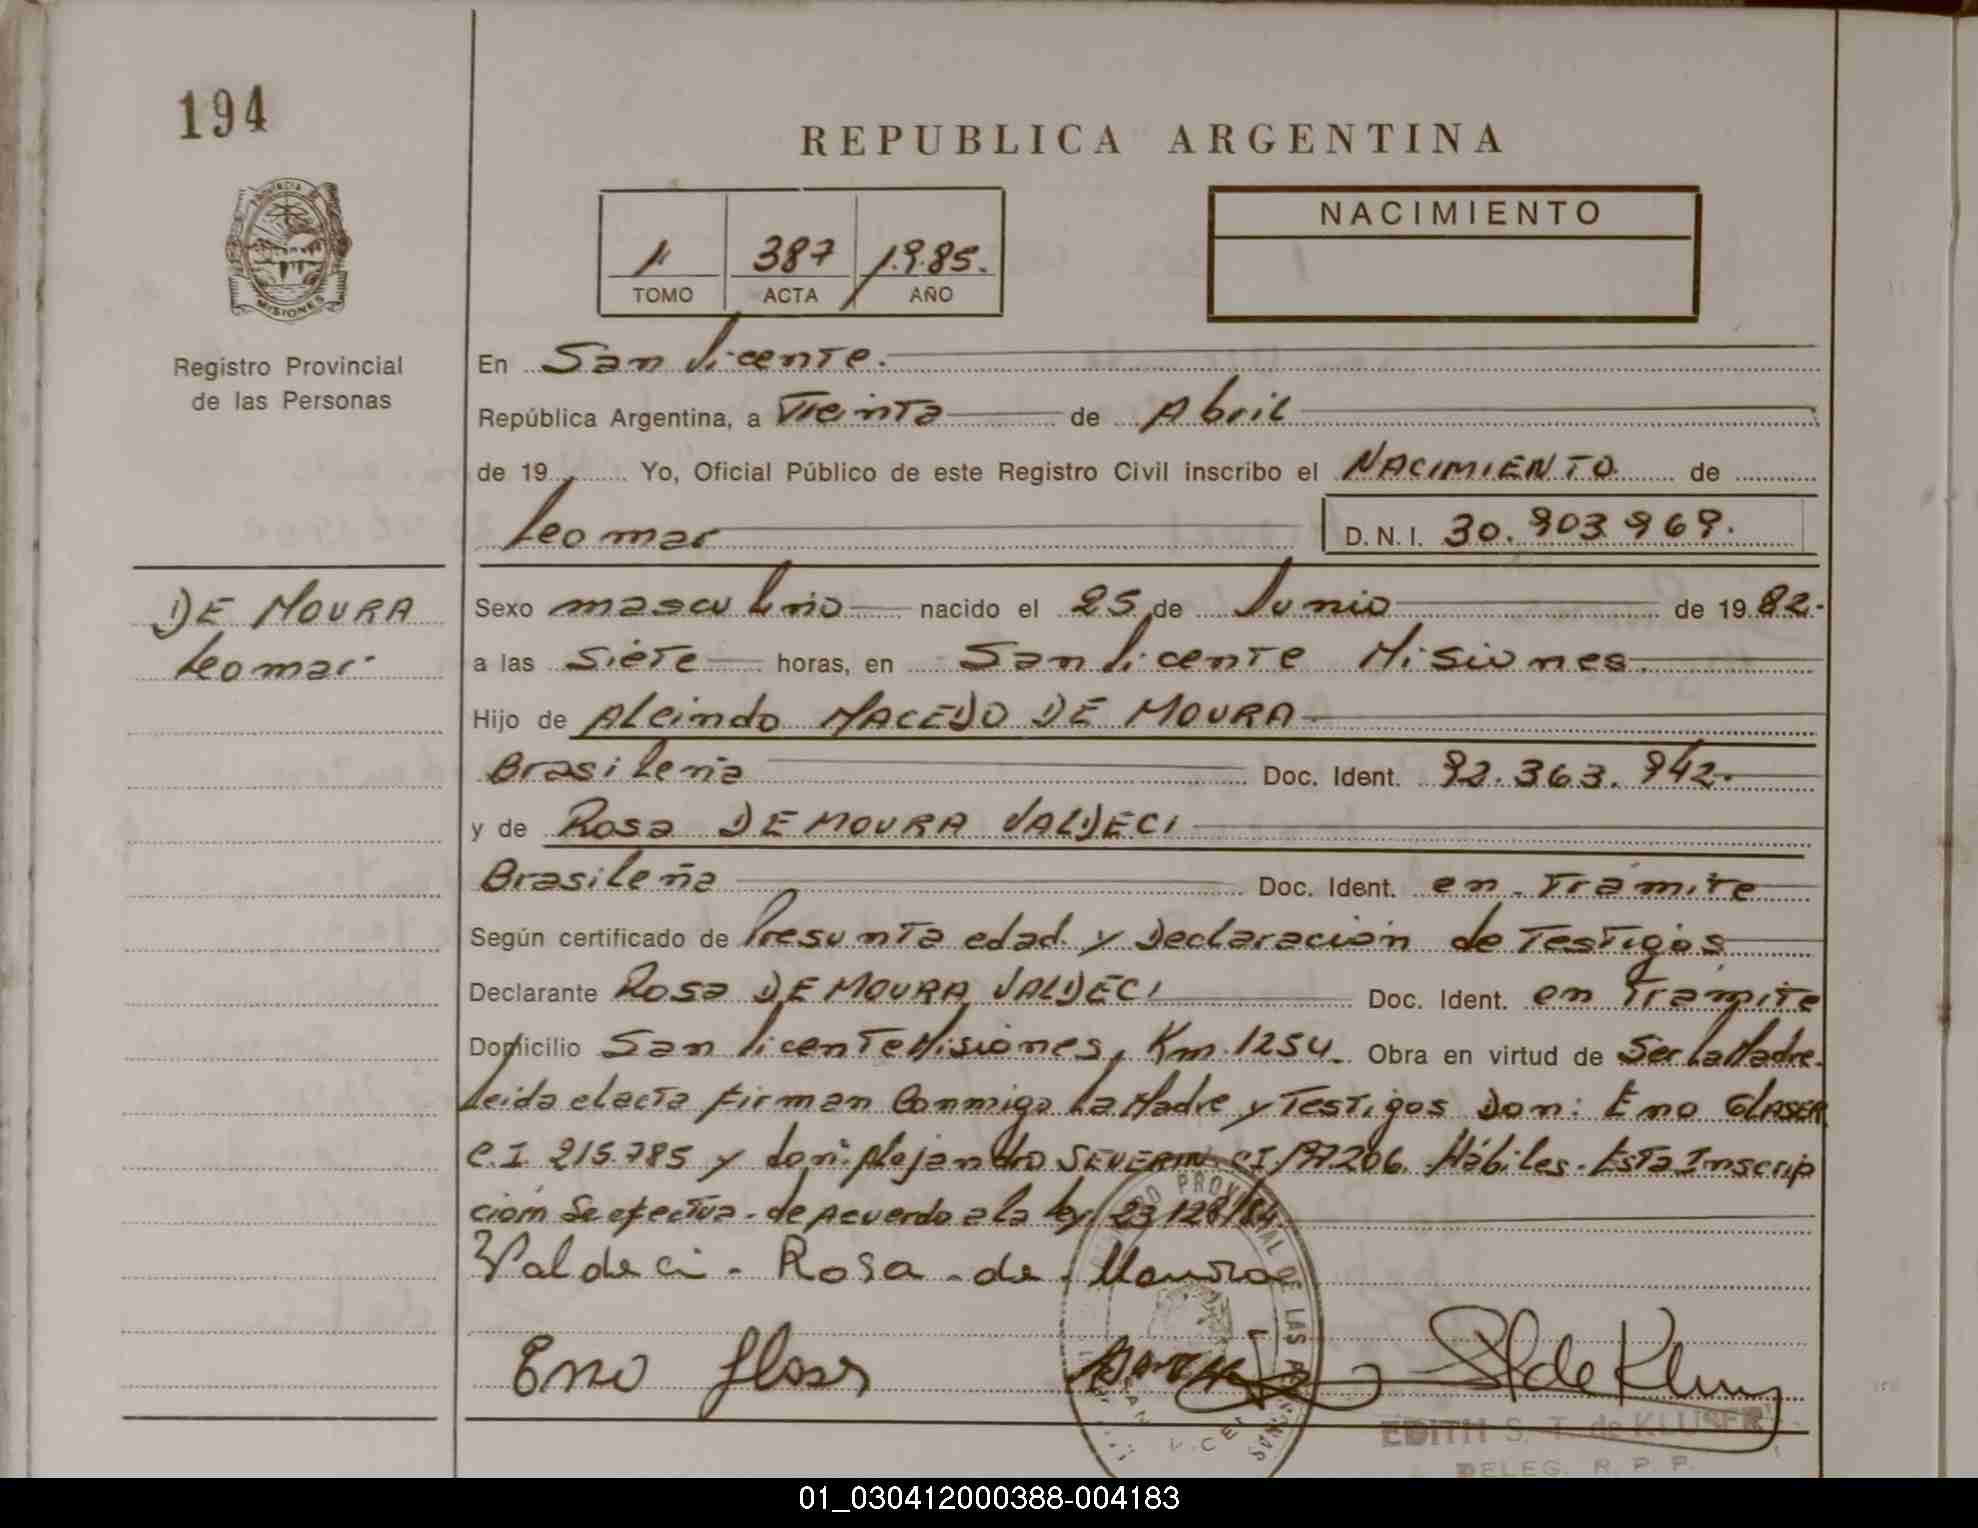 194
REPUBLICA ARGENTINA
PROVINCIA DE
MISIONES
Registro Provincial
de las Personas
1 387 1.9.85.
TOMO ACTA AÑO
NACIMIENTO
En San Vicente.
República Argentina, a Treinta de Abril
de 19 Yo, Oficial Público de este Registro Civil inscribo el NACIMIENTO de
Leomar D. N. I. 30.903.969.
DE MOURA
Leomar
Sexo masculino nacido el 25 de Junio de 1982.
a las siete horas, en San Vicente Misiones.
Hijo de Alcindo MACEDO DE MOURA
Brasileña Doc. Ident. 92.363.942.
y de Rosa DE MOURA VALDECI
Brasileña Doc. Ident. en Trámite
Según certificado de Presunta edad y Declaración de Testigos
Declarante Rosa DE MOURA VALDECI Doc. Ident. en Trámite
Domicilio San Vicente Misiones, Km. 1254. Obra en virtud de Ser La Madre.
Leida el acta Firman Conmigo La Madre y Testigos Don: Eno GLASER
C.I 215.785 y don: Alejandro SEVERIN CI 197206. Hábiles. Esta Inscrip
ción Se efectua de Acuerdo a la ley 23128/84.
Valdeci - Rosa - de - Moura
Eno
EDITH S. T. de KLUSER
DELEG. R. P. P.
01_030412000388-004183